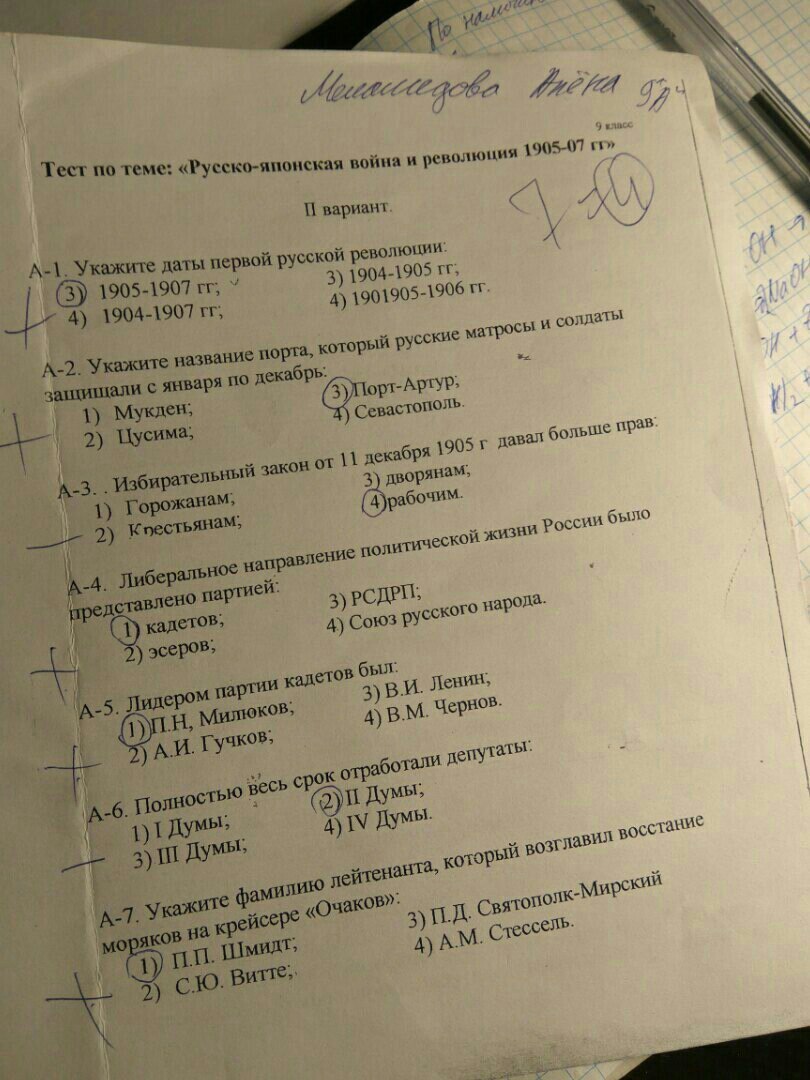 По
Алёна 9"А"
9 класс
Тест по теме: «Русско-японская война и революция 1905-07 гг»
II вариант.
А-1. Укажите даты первой русской революции:
3) 1905-1907 гг; 3) 1904-1905 гг;
4) 1904-1907 гг; 4) 1901905-1906 гг.
А-2. Укажите название порта, который русские матросы и солдаты
защищали с января по декабрь:
1) Мукден; 3) Порт-Артур;
2) Цусима; 4) Севастополь.
А-3. . Избирательный закон от 11 декабря 1905 г давал больше прав:
1) Горожанам; 3) дворянам;
2) Крестьянам; 4) рабочим.
А-4. Либеральное направление политической жизни России было
представлено партией:
1) кадетов; 3) РСДРП;
2) эсеров; 4) Союз русского народа.
А-5. Лидером партии кадетов был:
1) П.Н, Милюков; 3) В.И. Ленин;
2) А.И. Гучков; 4) В.М. Чернов.
А-6. Полностью весь срок отработали депутаты:
1) I Думы; 2) II Думы;
3) III Думы; 4) IV Думы.
А-7. Укажите фамилию лейтенанта, который возглавил восстание
моряков на крейсере «Очаков»:
1) П.П. Шмидт; 3) П.Д. Святополк-Мирский
2) С.Ю. Витте; 4) А.М. Стессель.